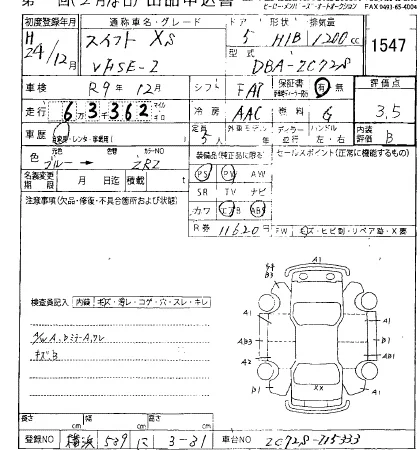 出品申込書
FAX 0493-65-4004
初度登録年月 通称車名・グレード ドア 形状 排気量
H 24/12月 スイフト XS 5 H/B 1200 cc 1547
型式
DBA-ZC72S
車検 R9年12月 シフト FAT 保証書 有 無 評価点
走行 6万3千362 マイル キロ 冷房 AAC 燃料 G 3.5
車歴 自家用・レンタ・事務用 定員 5人 外車モデル 年 ディーラー 並行 ハンドル 左・右 内装評価 B
色 元色 ブルー → 色替 カラーNO ZRZ
装備品(純正品に限る) セールスポイント(正常に機能するもの)
名義変更期限 月 日迄 積載
PS PW AW
SR TV ナビ
注意事項(欠品・修復・不具合箇所および状態)
カワ エアB ABS
R券 11620円 FW キズ・ヒビ割・リペア跡・X要
検査員記入 内装 キズ・汚レ・コゲ・穴・スレ・キレ
A1
A1
A1
AB3
A1
A2
B1
B1
XX
A1
長さ cm 幅 cm 高さ cm
登録NO 横浜 539 に 3-31 車台NO ZC72S-215333